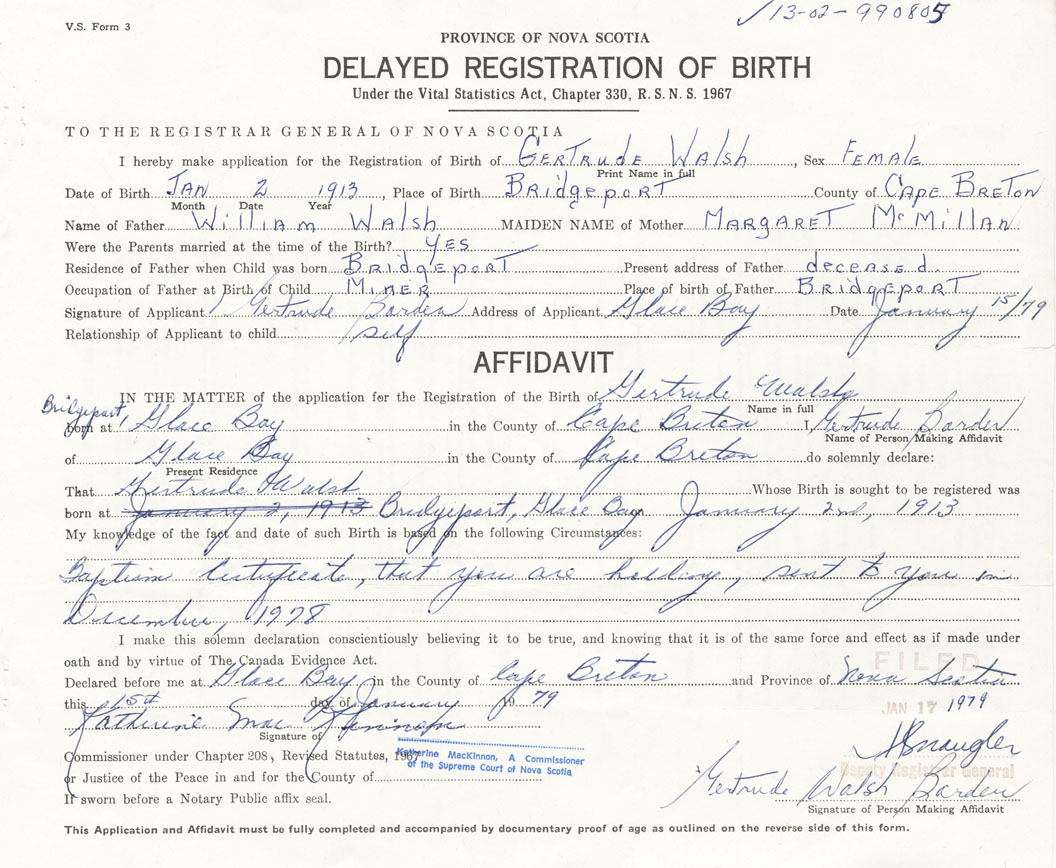 V.S. Form 3
✓13-02-990805
PROVINCE OF NOVA SCOTIA
DELAYED REGISTRATION OF BIRTH
Under the Vital Statistics Act, Chapter 330, R.S.N.S. 1967
TO THE REGISTRAR GENERAL OF NOVA SCOTIA
I hereby make application for the Registration of Birth of GERTRUDE WALSH, Sex FEMALE
Print Name in full
Date of Birth JAN 2 1913, Place of Birth BRIDGEPORT County of CAPE BRETON
Month Date Year
Name of Father WILLIAM WALSH MAIDEN NAME of Mother MARGARET McMILLAN
Were the Parents married at the time of the Birth? YES
Residence of Father when Child was born BRIDGEPORT Present address of Father deceased.
Occupation of Father at Birth of Child MINER Place of birth of Father BRIDGEPORT
Signature of Applicant Gertrude Barden Address of Applicant Glace Bay Date January 15/79
Relationship of Applicant to child self
AFFIDAVIT
IN THE MATTER of the application for the Registration of Birth of Gertrude Walsh
Name in full
Bridgeport,
born at Glace Bay in the County of Cape Breton I, Gertrude Barden
Name of Person Making Affidavit
of Glace Bay in the County of Cape Breton do solemnly declare:
Present Residence
That Gertrude Walsh Whose Birth is sought to be registered was
born at January 2, 1913 Bridgeport, Glace Bay on January 2nd, 1913
My knowledge of the fact and date of such Birth is based on the following Circumstances:
Baptism Certificate, that you are holding, sent to you in
December, 1978
I make this solemn declaration conscientiously believing it to be true, and knowing that it is of the same force and effect as if made under
oath and by virtue of The Canada Evidence Act.
FILED
Declared before me at Glace Bay in the County of Cape Breton and Province of Nova Scotia
this 15th day of January 1979
JAN 17 1979
Katherine MacKinnon
Signature of
Commissioner under Chapter 208, Revised Statutes, 1967
Katherine MacKinnon, A Commissioner
of the Supreme Court of Nova Scotia
Deputy Registrar General
or Justice of the Peace in and for the County of
Gertrude Walsh Barden
If sworn before a Notary Public affix seal.
Signature of Person Making Affidavit
This Application and Affidavit must be fully completed and accompanied by documentary proof of age as outlined on the reverse side of this form.